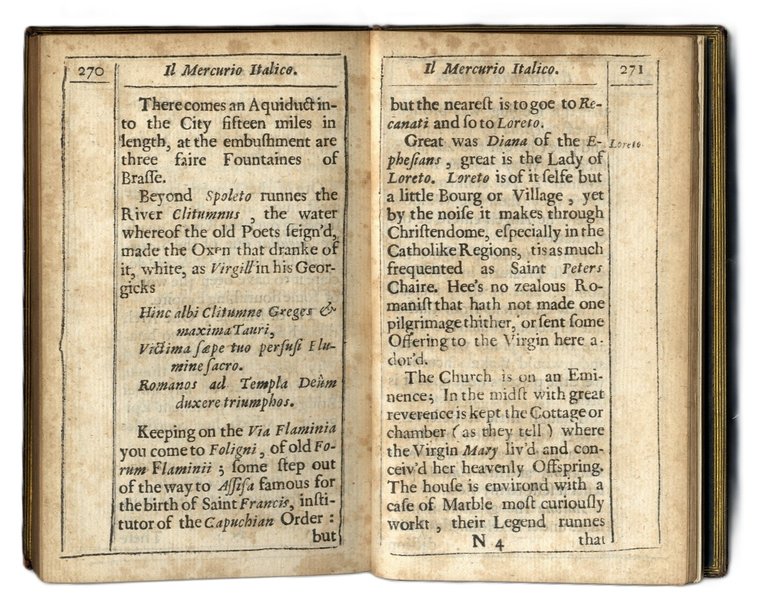 270
Il Mercurio Italico.
There comes an Aquiduct in-
to the City fifteen miles in
length, at the embuſhment are
three faire Fountaines of
Braſſe.
Beyond Spoleto runnes the
River Clitumnus , the water
whereof the old Poets feign'd,
made the Oxen that dranke of
it, white, as Virgill in his Geor-
gicks
Hinc albi Clitumne Greges &
maxima Tauri,
Victima ſæpe tuo perfuſi Flu-
mine ſacro.
Romanos ad Templa Deûm
duxere triumphos.
Keeping on the Via Flaminia
you come to Foligni , of old Fo-
rum Flaminii ; ſome ſtep out
of the way to Aſſiſa famous for
the birth of Saint Francis, inſti-
tutor of the Capuchian Order :
but
Il Mercurio Italico.
271
but the neareſt is to goe to Re-
canati and ſo to Loreto.
Great was Diana of the E-
Loreto.
pheſians , great is the Lady of
Loreto. Loreto is of it ſelfe but
a little Bourg or Village , yet
by the noiſe it makes through
Chriſtendome, eſpecially in the
Catholike Regions, tis as much
frequented as Saint Peters
Chaire. Hee's no zealous Ro-
maniſt that hath not made one
pilgrimage thither, or ſent ſome
Offering to the Virgin here a-
dor'd.
The Church is on an Emi-
nence; In the midſt with great
reverence is kept the Cottage or
chamber (as they tell) where
the Virgin Mary liv'd and con-
ceiv'd her heavenly Offspring.
The houſe is environd with a
caſe of Marble moſt curiouſly
workt , their Legend runnes
N 4
that